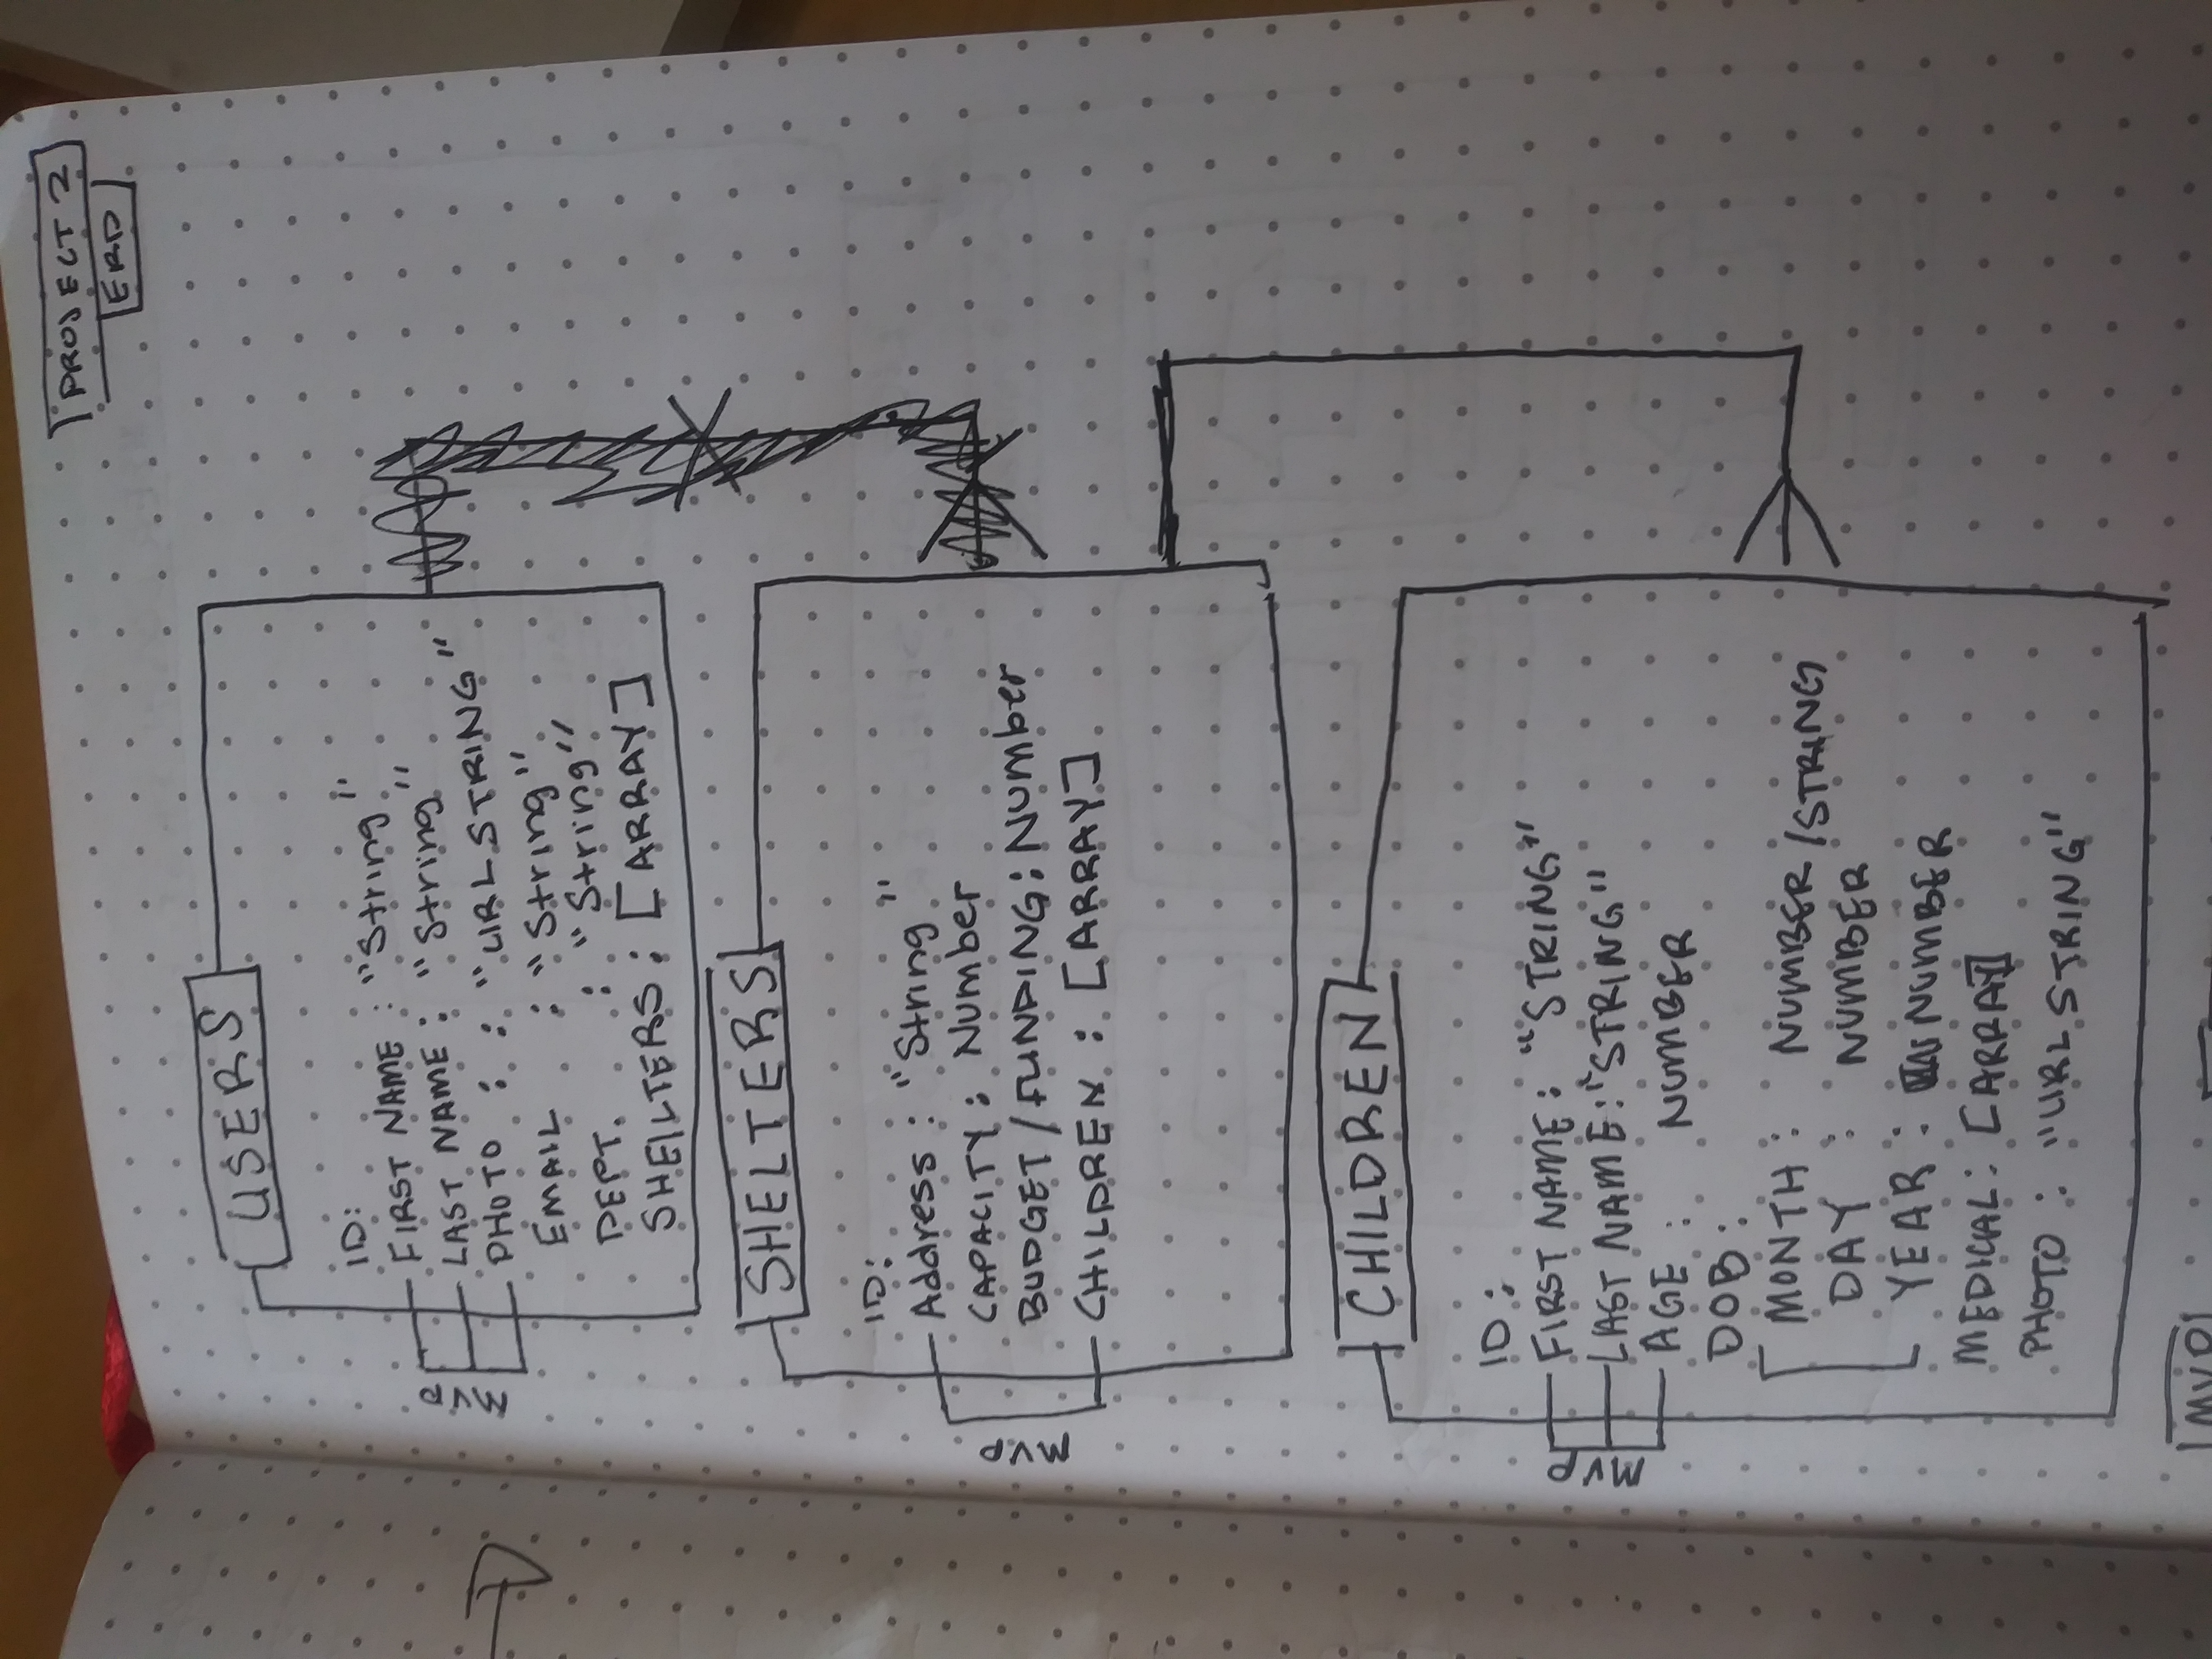 PROJECT 2
ERD
USERS
ID:
FIRST NAME : "String"
LAST NAME : "String"
PHOTO : : "URLSTRING"
EMAIL : "String"
DEPT. : "String"
SHELTERS : [ARRAY]
MVP
SHELTERS
ID:
Address : "String"
CAPACITY : Number
BUDGET / FUNDING : Number
CHILDREN : [ARRAY]
MVP
CHILDREN
ID:
FIRST NAME : "STRING"
LAST NAME : "STRING"
AGE : NUMBER
DOB :
MONTH : NUMBER/STRING
DAY : NUMBER
YEAR : NUMBER
MEDICAL : [ARRAY]
PHOTO : "URLSTRING"
MVP